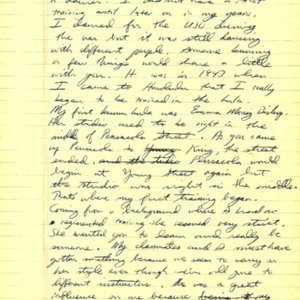 a dancer. I did not have a strict
training until later on in my years.
I danced for the USO during
the war but it was still dancing
with different people. Someone knowing
a few things would share a little
with you. It was in 1947 when
I came to Honolulu that I really
began to be trained in the hula.
My first kumu hula was Emma
Her studio used to be right in the
middle of Pensacola Street. As you came
up Pensacola to Young King, the street
ended, and the studio Pensacola would
begin at Young Street again but
the studio was right in the middle.
Thats where my first training began.
Coming from a background where I had no
regimented training she seemed very strict.
She wanted you to learn and really be
someone. My classmates and I must have
gotten something because we seem to carry on
her style even though we've all gone to
different instructors. She was a great
influence on me because